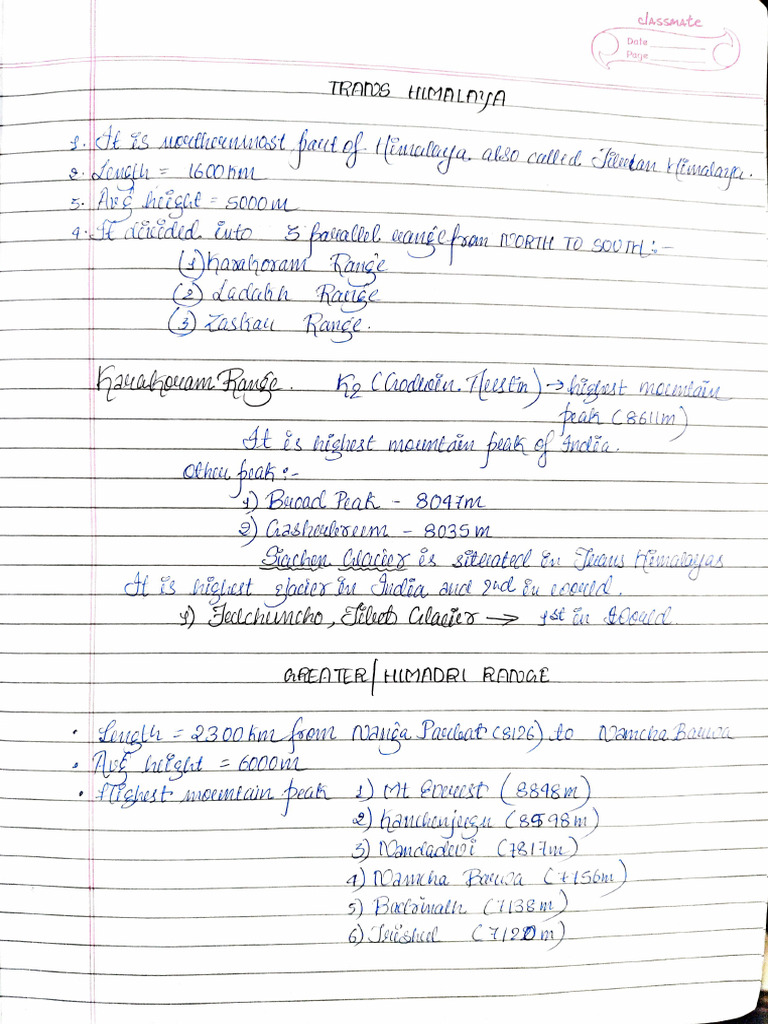 classmate
Date
Page
TRANS HIMALAYA
1. It is northernmost part of Himalaya. also called Tibetan Himalaya.
2. Length = 1600km
3. Avg height = 5000m
4. It divided into 3 parallel range from NORTH TO SOUTH:-
(1) Karakoram Range
(2) Ladakh Range
(3) Zaskar Range.
Karakoram Range. K2 (Godwin. Austin) → highest mountain
peak (8611m)
It is highest mountain peak of India.
Other peak:-
1) Broad Peak - 8047m
2) Gasherbreem - 8035m
Siachen Glacier is situated in Trans Himalayas
It is highest glacier in India and 2nd in world.
1) Fedchincho, Tibet Glacier → 1st in World.
GREATER/HIMADRI RANGE
• Length = 2300km from Nanga Parbat (8126) to Namcha Barwa
• Avg height = 6000m
• Highest mountain peak 1) Mt Everest (8848m)
2) Kanchenjegu (8598m)
3) Nandadevi (7817m)
4) Namcha Barwa (7756m)
5) Badrinath (7138m)
6) Trishul (7120m)